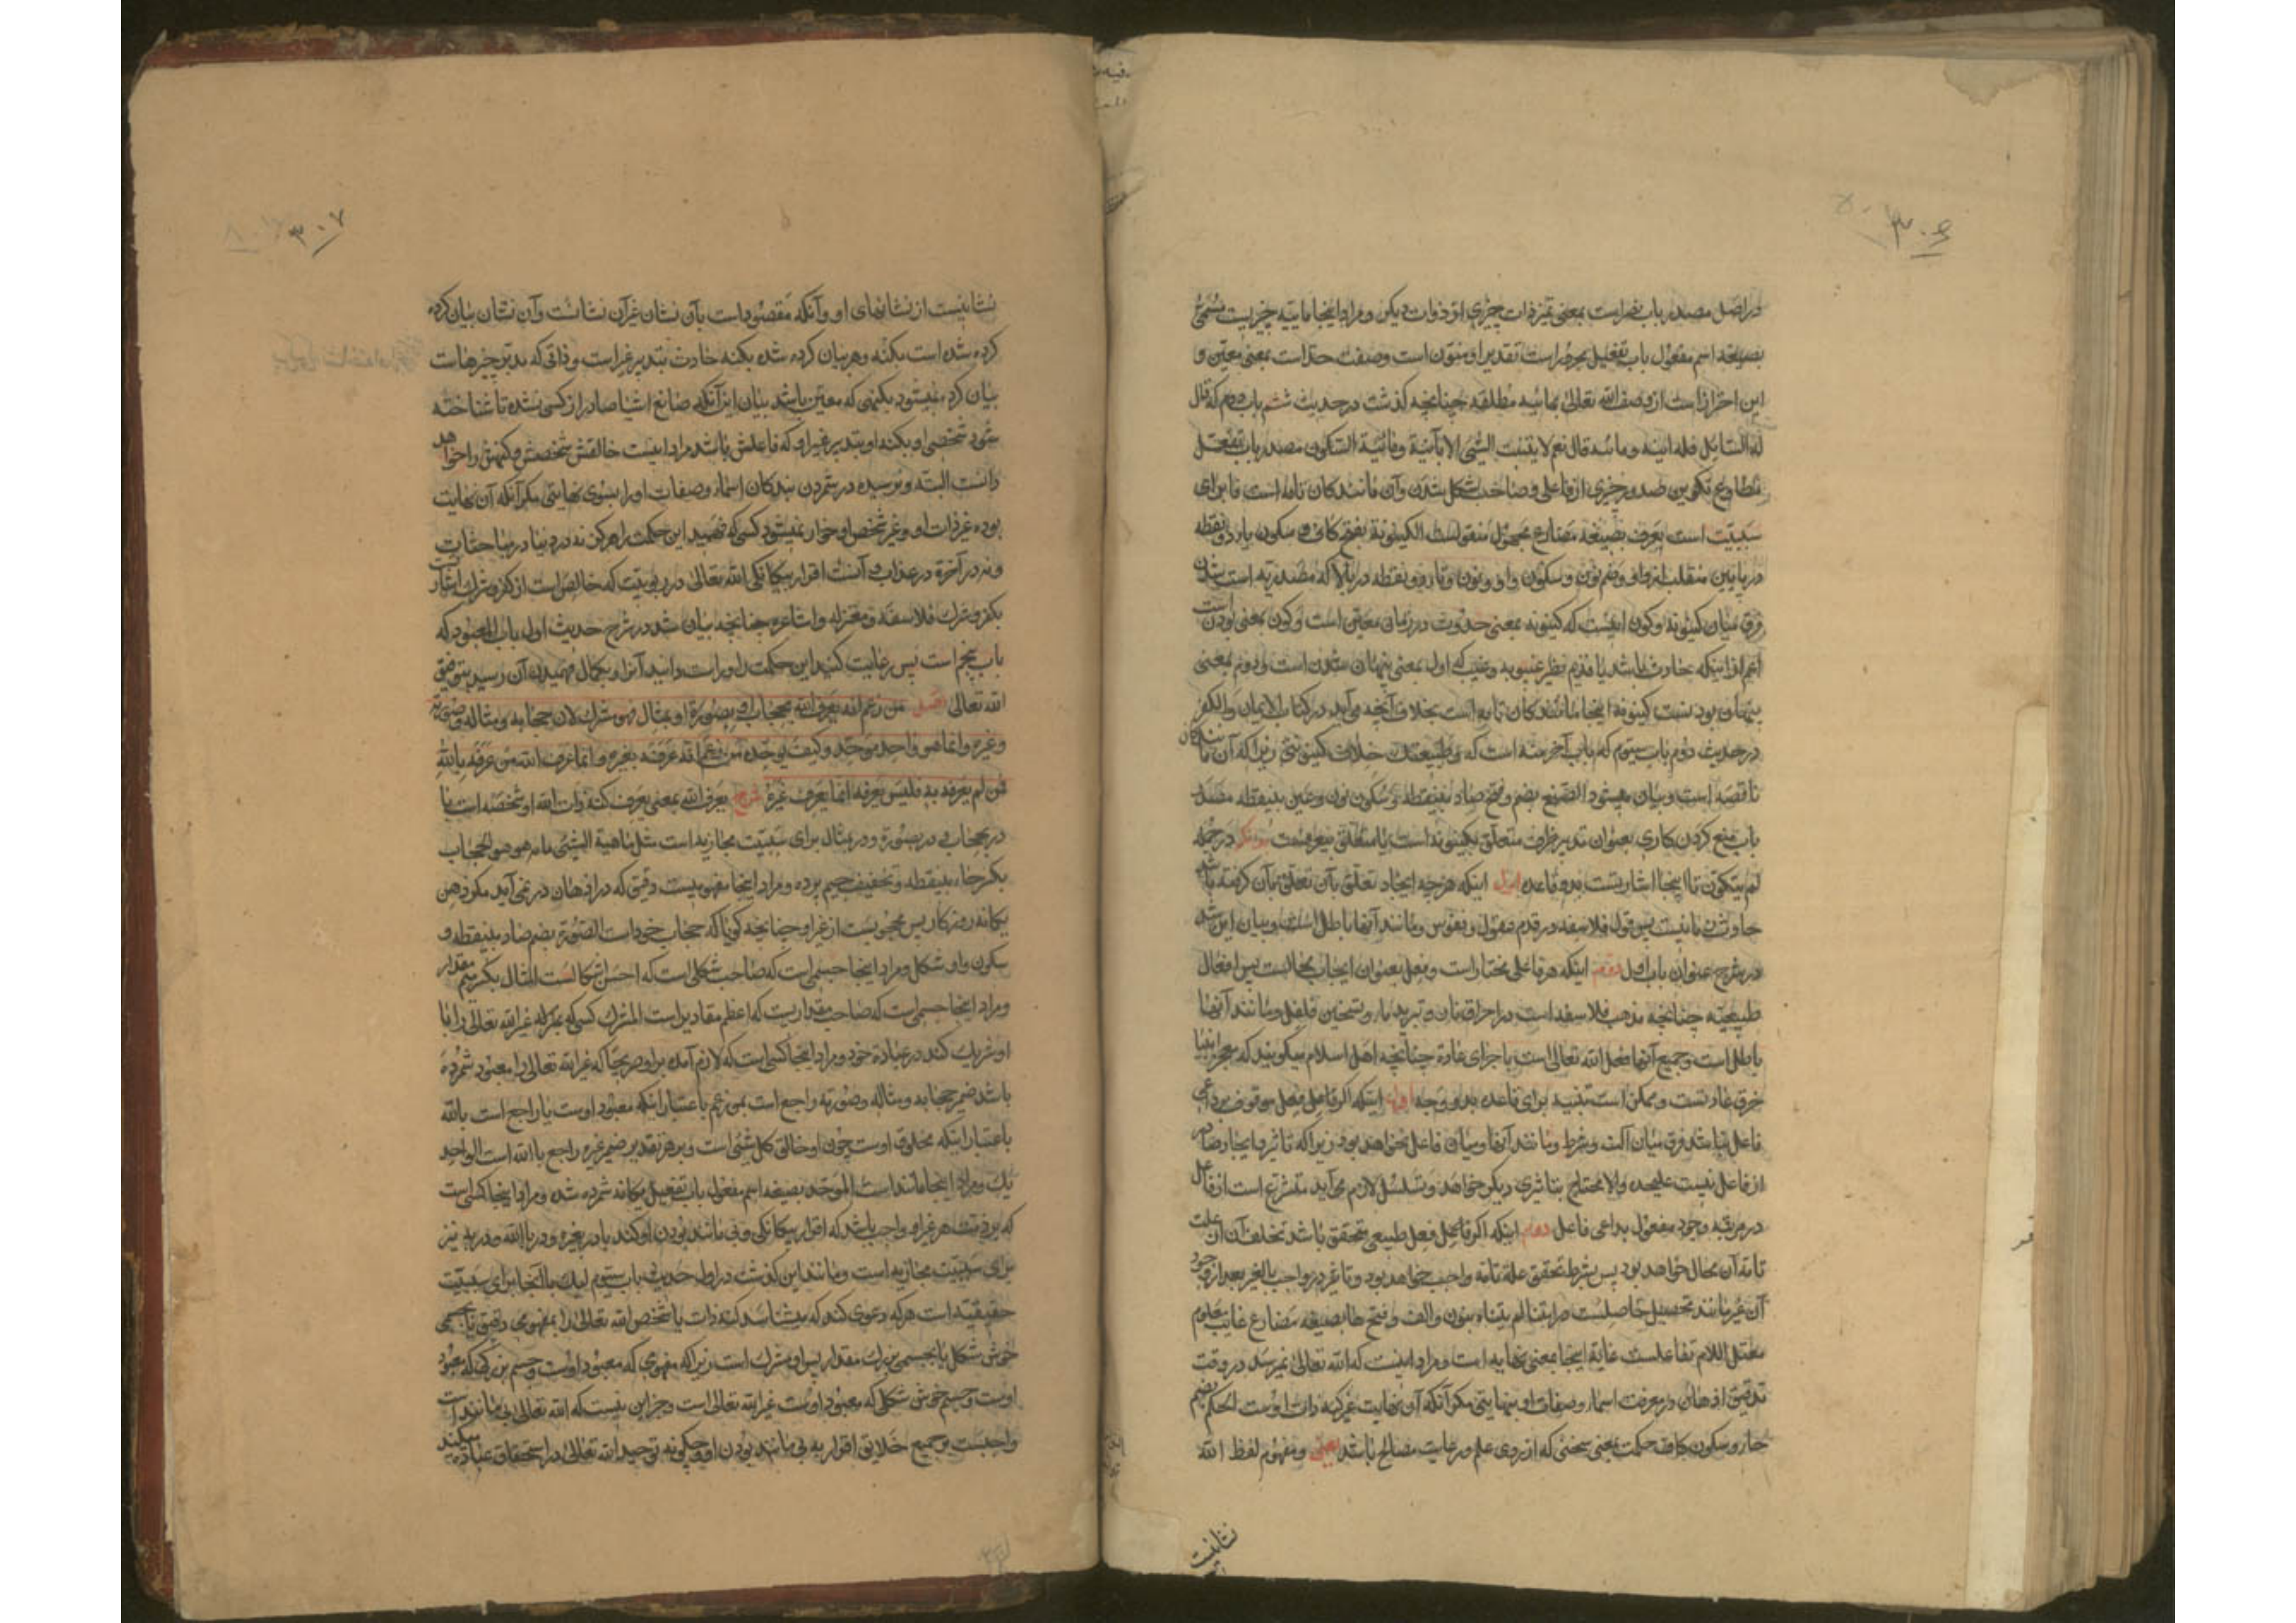 ۳۰۶
در اصل مصدر باب نصر است بمعنی تمیز ذات چیزی از ذوات دیگر و مراد اینجا مابه چیزیست مسمی
بصیغه اسم مفعول باب تفعیل مجرور است تقدیرا و منون است و صفت حد است بمعنی معین و
این احتراز است از وصف الله تعالی بمائیه مطلقه چنانچه گذشت در حدیث ششم باب دوم که قال
له السائل فله انیه و مائیه قال نعم لا یثبت الشی الا بانیة و مائیة التکون مصدر باب تفعل
مطاوع تکوین صدور چیزی از فاعلی و صاحب شکل شدن و آن مانند کان تامه است فا برای
سببیت است یعرف بصیغه مضارع مجهول منقولست الکینونة بفتح کاف و سکون یاء دو نقطه
در پایین منقلب از واو و ضم نون و سکون واو و نون و تاء دو نقطه در بالا که مصدریه است شدن
فرق میان کینونة و کون اینست که کینونه بمعنی حدوث در زمان معین است و کون بمعنی بودن است
اعم از اینکه حادث باشد یا قدیم نظیر غیبوبه و غیب که اول بمعنی پنهان شدن است و دوم بمعنی
پنهان بودنست کینونة اینجا مانند کان تامه است بخلاف آنچه می آید در کتاب الایمان و الکفر
در حدیث دوم باب سیوم که باب آخر منه است که و طبیعتک خلاف کینونتی زیرا که آن مانند کان
ناقصه است و بیان میشود الصنع بضم و فتح صاد بینقطه و سکون نون و عین بینقطه مصدر
باب منع کردن کاری بعنوان تدبیر ظرف متعلق بکینونة است یا متعلق بیعرفست در جمله
لم یتکون تا اینجا اشارتست بدو قاعده اول اینکه هر چه ایجاد تعلق بآن تعلق بآن گرفته باشد
حادث زمانیست پس قول فلاسفه در قدم عقول و نفوس و مانند آنها باطل است و بیان این شد
در شرح عنوان باب اول دوم اینکه هر فاعلی مختار است و فعل بعنوان ایجاب محالست پس افعال
طبیعیه چنانچه مذهب فلاسفه است در احراق نار و تبرید ماء و تسخین فلفل و مانند آنها
باطل است و جمیع آنها فعل الله تعالی است باجرای عادة چنانچه اهل اسلام میگویند که معجز انبیا
خرق عادتست و ممکن است تنبیه برای قاعده بدو وجه اول اینکه اگر فاعل فعل موقوف بر داعی
فاعل نباشد فرق میان آلت و شرط و مانند آنها و میان فاعل نخواهد بود زیرا که تاثیر و ایجاد صادر
از فاعل نیست علیحده و الا محتاج بتاثیری دیگر خواهد و تسلسل لازم می آید متفرع است از فاعل
در مرتبه وجود مفعول بداعی فاعل دوم اینکه اگر فاعل فعل طبیعی متحقق باشد تخلف آن از علت
تامه آن محال خواهد بود پس بشرط تحقق علة تامه واجب خواهد بود و تاثیر در واجب بالغیر بعد از وجود
آن غیر مانند تحصیل حاصلست لم یتناه بنون و الف و فتح ها بصیغه مضارع غایب معلوم
معتل اللام تفاعلست غایة اینجا بمعنی نهایه است و مراد اینست که الله تعالی نمیرسد در وقت
تدقیق اذهان در معرفت اسماء و صفات او بنهایتی مگر آنکه آن نهایت غیر کنه ذات اوست الحکم بضم
حاء و سکون کاف حکمت بمعنی سخنی که از روی علم و رعایت مصالح باشد یعنی و مفهوم لفظ الله
نشانیست
۳۰۷
نشانیست از نشانهای او و آنکه مقصود است بآن نشان غیر آن نشانست و آن نشان بیان کرده
کرده شده است بکنه و هر بیان کرده شده بکنه حادث بتدبیر غیر است و ذاتی که مدبر چیزهاست
بیان کرده نمیشود بکنهی که معین باشد بیان این آنکه صانع اشیا صادر از کسی نشده تا شناخته
شود شخص او بکنه او بتدبیر غیر او که فاعلش باشد مراد اینست خالقش شخصش و کنهش را خواهد
دانست البته و نرسیده در شمردن بندگان اسماء و صفات او را بسوی نهایتی مگر آنکه آن نهایت
بوده غیر ذات او و غیر شخص او خوار نمیشود کسی که فهمید این حکمت را هرگز نه در دنیا در مباحثات
و نه در آخرة در عذاب و آنست اقرار بیگانگی الله تعالی در ربوبیت که خالص است از کفر و شرک اشارتست
بکفر و شرک فلاسفه و معتزله و اشاعره چنانچه بیان شد در شرح حدیث اول باب المعبود که
باب پنجم است پس رعایت کنید این حکمت را و راست دانید آنرا و بکمال فهمیدن آن رسید بتوفیق
الله تعالی اصل من زعم انه یعرف الله بحجاب او بصورة او بمثال فهو مشرک لان حجابه و مثاله و صورته
غیره و انما هو واحد موحد و کیف یوحده من زعم انه عرفه بغیره و انما عرف الله من عرفه بالله
فمن لم یعرفه به فلیس یعرفه انما یعرف غیره شرح یعرف الله بمعنی یعرف کنه ذات الله او شخصه است با
در بحجاب و در بصورة و در بمثال برای سببیت مجازیه است مثل ماهیة الشئ ما به هو هو الحجاب
بکسر حاء بینقطه و تخفیف جیم پرده و مراد اینجا مفهومیست دقیق که در اذهان در نمی آید مگر ذهن
یگانه روزگار پس محجوبست از غیر او چنانچه گویا که حجاب خود است الصورة بضم صاد بینقطه و
سکون واو شکل و مراد اینجا جسمی است که صاحب شکلی است که احسن اشکالست المثال بکسر میم مقدار
و مراد اینجا جسمی است که صاحب مقداریست که اعظم مقادیر است المشرک کسی که غیر الله تعالی را با
او شریک کند در عبادة خود و مراد اینجا کسی است که لازم آمده بر او صریحا که غیر الله تعالی را معبود شمرده
باشد ضمیر حجابه و مثاله و صورته راجع است بمن زعم باعتبار اینکه معبود اوست یا راجع است بالله
باعتبار اینکه مخلوق اوست چون او خالق کل شئ است و بر هر تقدیر ضمیر غیره راجع بالله است الواحد
یک و مراد اینجا بی مانند است الموحد بصیغه اسم مفعول باب تفعیل یگانه شمرده شده و مراد اینجا کسی است
که بر ذمت هر غیر او واجب باشد که اقرار بیگانگی و بی مانند بودن او کند باء در بغیره و در بالله و در به نیز
برای سببیت مجازیه است و مانند این گذشت در اول حدیث باب سیوم لیک باء آنجا برای سببیت
حقیقیه است هر که دعوی کند که میشناسد کنه ذات یا شخص الله تعالی را بمفهومی دقیق یا بجسمی
خوش شکل یا بجسمی بزرگ مقدار پس او مشرک است زیرا که مفهومی که معبود اوست و جسم بزرگ که معبود
اوست و جسم خوش شکل که معبود اوست غیر الله تعالی است و جز این نیست که الله تعالی بی مانند است
واجبست بر جمیع خلایق اقرار به بی مانند بودن او و چگونه توحید الله تعالی در استحقاق عبادة میکند